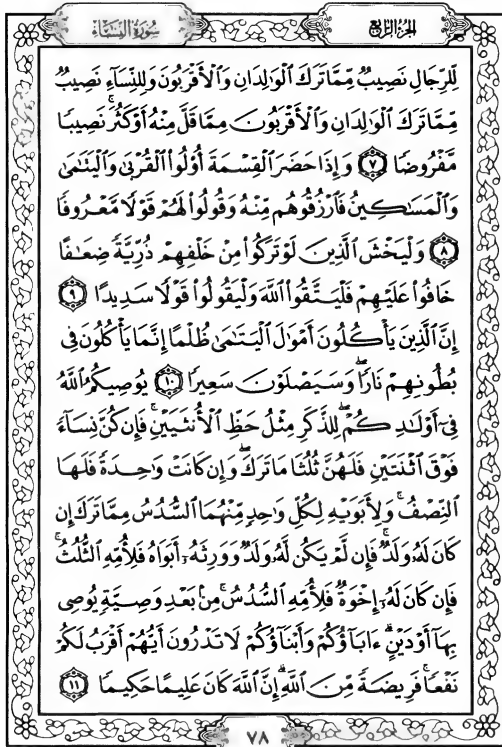 سُورَةُ النِّسَاءِ
الجُزءُ الرَّابِعُ
لِّلرِّجَالِ نَصِيبٌ مِّمَّا تَرَكَ ٱلْوَٰلِدَانِ وَٱلْأَقْرَبُونَ وَلِلنِّسَآءِ نَصِيبٌ
مِّمَّا تَرَكَ ٱلْوَٰلِدَانِ وَٱلْأَقْرَبُونَ مِمَّا قَلَّ مِنْهُ أَوْ كَثُرَ ۚ نَصِيبًا
مَّفْرُوضًا ٧ وَإِذَا حَضَرَ ٱلْقِسْمَةَ أُو۟لُوا۟ ٱلْقُرْبَىٰ وَٱلْيَتَٰمَىٰ
وَٱلْمَسَٰكِينُ فَٱرْزُقُوهُم مِّنْهُ وَقُولُوا۟ لَهُمْ قَوْلًا مَّعْرُوفًا
٨ وَلْيَخْشَ ٱلَّذِينَ لَوْ تَرَكُوا۟ مِنْ خَلْفِهِمْ ذُرِّيَّةً ضِعَٰفًا
خَافُوا۟ عَلَيْهِمْ فَلْيَتَّقُوا۟ ٱللَّهَ وَلْيَقُولُوا۟ قَوْلًا سَدِيدًا ٩
إِنَّ ٱلَّذِينَ يَأْكُلُونَ أَمْوَٰلَ ٱلْيَتَٰمَىٰ ظُلْمًا إِنَّمَا يَأْكُلُونَ فِى
بُطُونِهِمْ نَارًا ۖ وَسَيَصْلَوْنَ سَعِيرًا ١٠ يُوصِيكُمُ ٱللَّهُ
فِىٓ أَوْلَٰدِكُمْ ۖ لِلذَّكَرِ مِثْلُ حَظِّ ٱلْأُنثَيَيْنِ ۚ فَإِن كُنَّ نِسَآءً
فَوْقَ ٱثْنَتَيْنِ فَلَهُنَّ ثُلُثَا مَا تَرَكَ ۖ وَإِن كَانَتْ وَٰحِدَةً فَلَهَا
ٱلنِّصْفُ ۚ وَلِأَبَوَيْهِ لِكُلِّ وَٰحِدٍ مِّنْهُمَا ٱلسُّدُسُ مِمَّا تَرَكَ إِن
كَانَ لَهُۥ وَلَدٌ ۚ فَإِن لَّمْ يَكُن لَّهُۥ وَلَدٌ وَوَرِثَهُۥٓ أَبَوَاهُ فَلِأُمِّهِ ٱلثُّلُثُ ۚ
فَإِن كَانَ لَهُۥٓ إِخْوَةٌ فَلِأُمِّهِ ٱلسُّدُسُ ۚ مِنۢ بَعْدِ وَصِيَّةٍ يُوصِى
بِهَآ أَوْ دَيْنٍ ۗ ءَابَآؤُكُمْ وَأَبْنَآؤُكُمْ لَا تَدْرُونَ أَيُّهُمْ أَقْرَبُ لَكُمْ
نَفْعًا ۚ فَرِيضَةً مِّنَ ٱللَّهِ ۗ إِنَّ ٱللَّهَ كَانَ عَلِيمًا حَكِيمًا ١١
٧٨